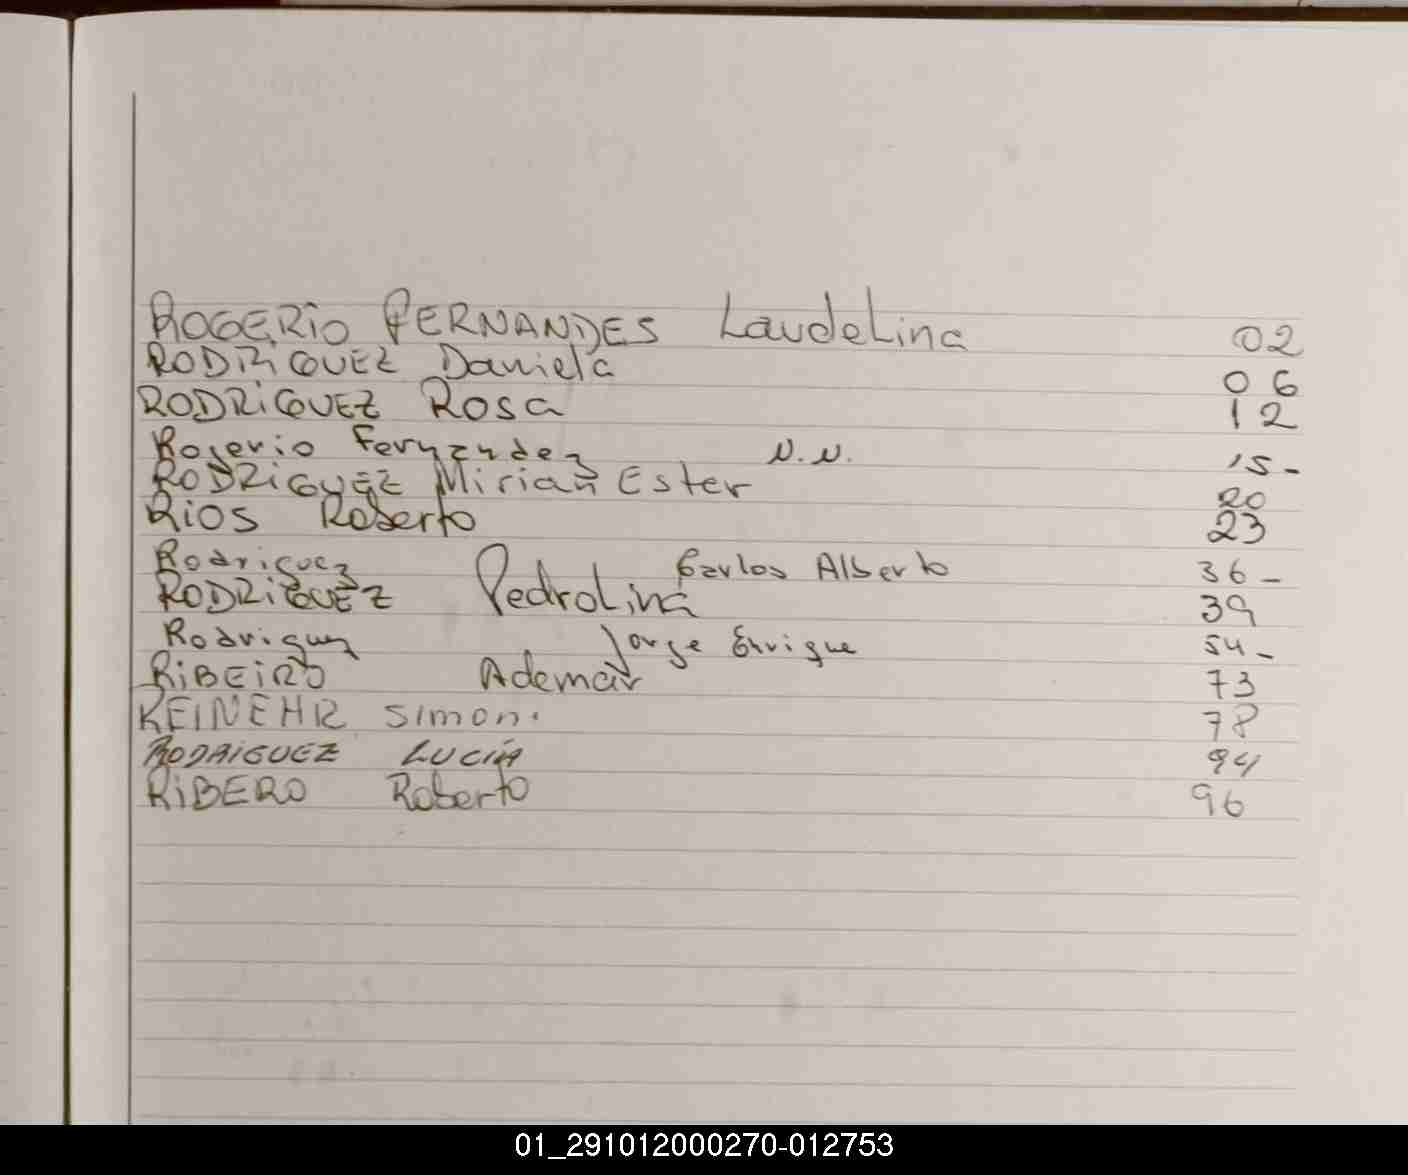 ROGERIO FERNANDES Laudelina 02
RODRIGUEZ Daniela 06
RODRIGUEZ Rosa 12
Rogerio Fernandez N.N. 15-
RODRIGUEZ Mirian Ester 20
RIOS Roberto 23
Rodriguez Carlos Alberto 36-
RODRIGUEZ Pedrolina 39
Rodriguez Jorge Enrique 54-
RIBEIRO Ademar 73
REINEHR Simon. 78
RODRIGUEZ LUCIA 94
RIBERO Roberto 96
01_291012000270-012753